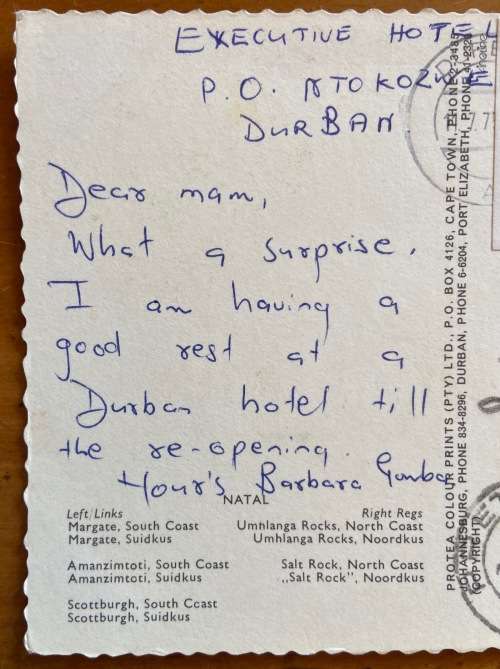 EXECUTIVE HOTEL
P.O. NTOKOZWE
DURBAN.
Dear mam,
What a surprise.
I am having a
good rest at a
Durban hotel till
the re-opening.
Hour's Barbara
NATAL
Left/Links
Margate, South Coast
Margate, Suidkus
Amanzimtoti, South Coast
Amanzimtoti, Suidkus
Scottburgh, South Coast
Scottburgh, Suidkus
Right Regs
Umhlanga Rocks, North Coast
Umhlanga Rocks, Noordkus
Salt Rock, North Coast
„Salt Rock", Noordkus
PROTEA COLOUR PRINTS (PTY) LTD., P.O. BOX 4126, CAPE TOWN, PHONE 2-3485
JOHANNESBURG, PHONE 834-8296, DURBAN, PHONE 6-6204, PORT ELIZABETH, PHONE 41-2328
(COPYRIGHT)